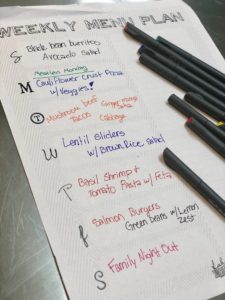 WEEKLY MENU PLAN
S Black bean burritos
Avocado Salad
Meatless Monday
M Cauliflower Crust Pizza
w/ Veggies!
T Mushroom Beef Ginger orange
Tacos Cabbage
W Lentil Sliders
w/ Brown Rice Salad
T Basil Shrimp &
Tomato Pasta w/ Feta
F Salmon Burgers
Green beans w/ Lemon
Zest
S Family Night Out